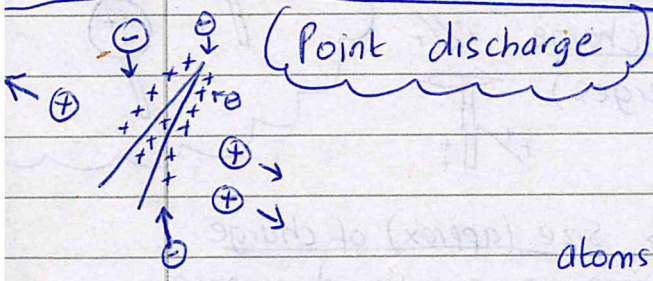 (Point discharge)
atoms